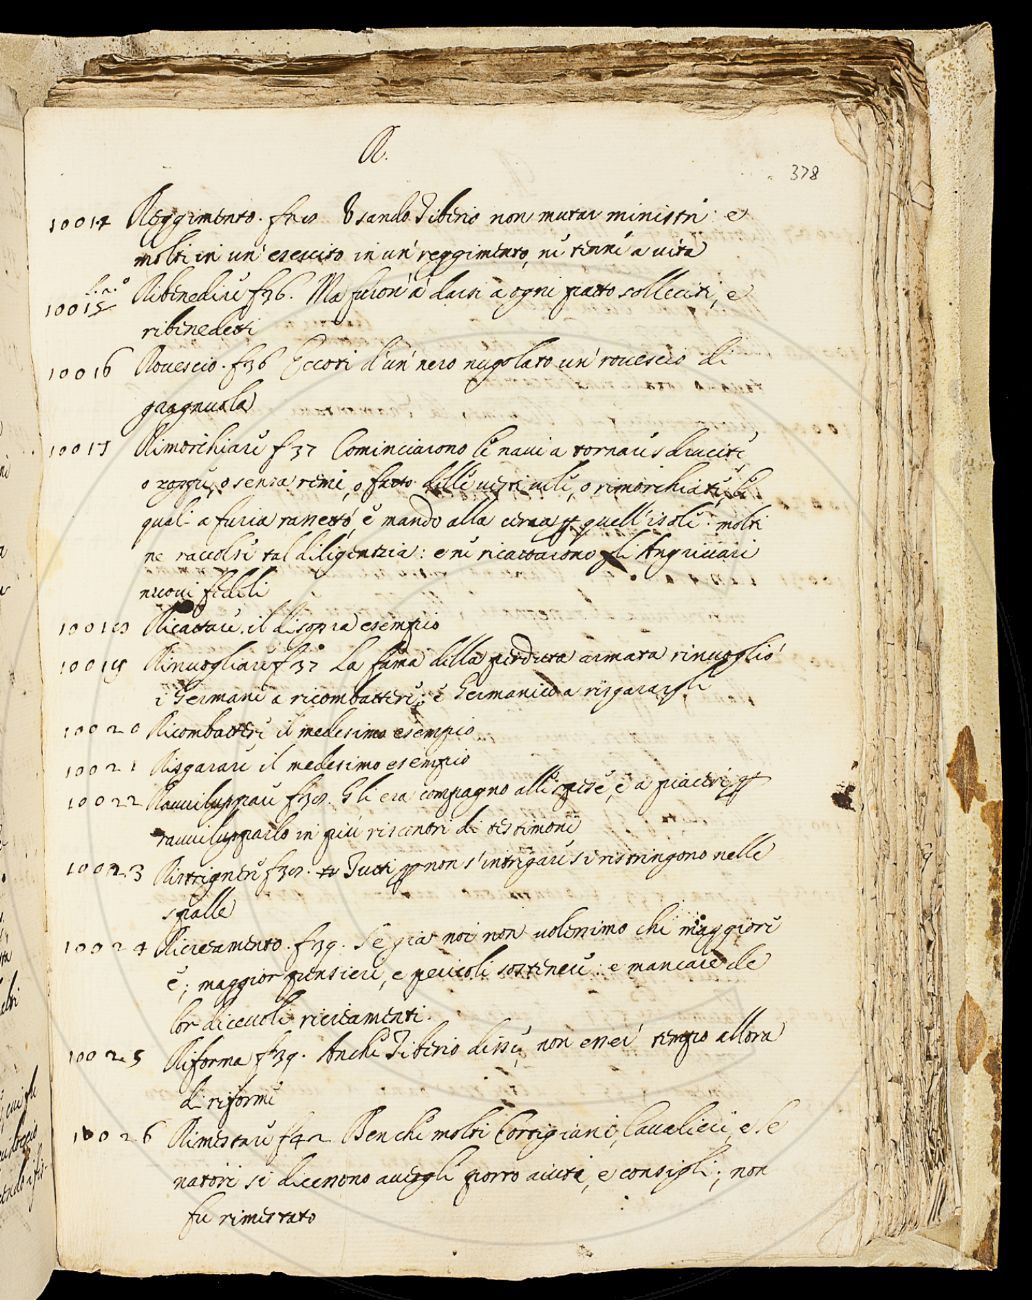 R.
378
10014 Reggimento. f28 Usando Tiberio non mutar ministri: e
molti in un'esercito in un'reggimento, ne tenne a vita
10015 Ribenedire f36. Ma furon'a darsi a ogni patto solleciti, e
ribenedetti
10016 Rovescio. f36 Eccoti d'un'nero nugolato un'rovescio di
gragnuola
10017 Rimorchiare f37 Cominciarono le navi a tornare sdrucite,
o zoppe, o senza remi, o fatto delle vesti vele, o rimorchiate, le
quali a furia rassettò, e mandò alla cerca per quell'isole: molti
ne raccolse tal diligentzia: e ne ricattarono gli Angrivari
nuovi fedeli
10018 Ricattare. il disopra esempio
10019 Rinvogliare f37 La fama della perduta armata rinvogliò
i Germani a ricombattere; e Germanico a risgarargli
10020 Ricombattere il medesimo esempio
10021 Risgarare il medesimo esempio
10022 Ravviluppare f38. Gli era compagno alle spese, e a piaceri per
ravvilupparlo in più riscontri di testimoni
10023 Ristrignere f38. Tutti per non s'intrigare si ristringono nelle
spalle
10024 Ricreamento. f39. Se già noi non volessimo chi maggiore
è; maggior pensieri, e pericoli sostenere: e mancare de
lor dicevoli ricreamenti.
10025 Riforma f39. Anche Tiberio disse, non esser tempo allora
di riforme
10026 Rimestare f42 Benche molti Cortigiani, Cavalieri, e Se
natori si dicerono avergli porto aiuti, e consigli; non
fu rimestato